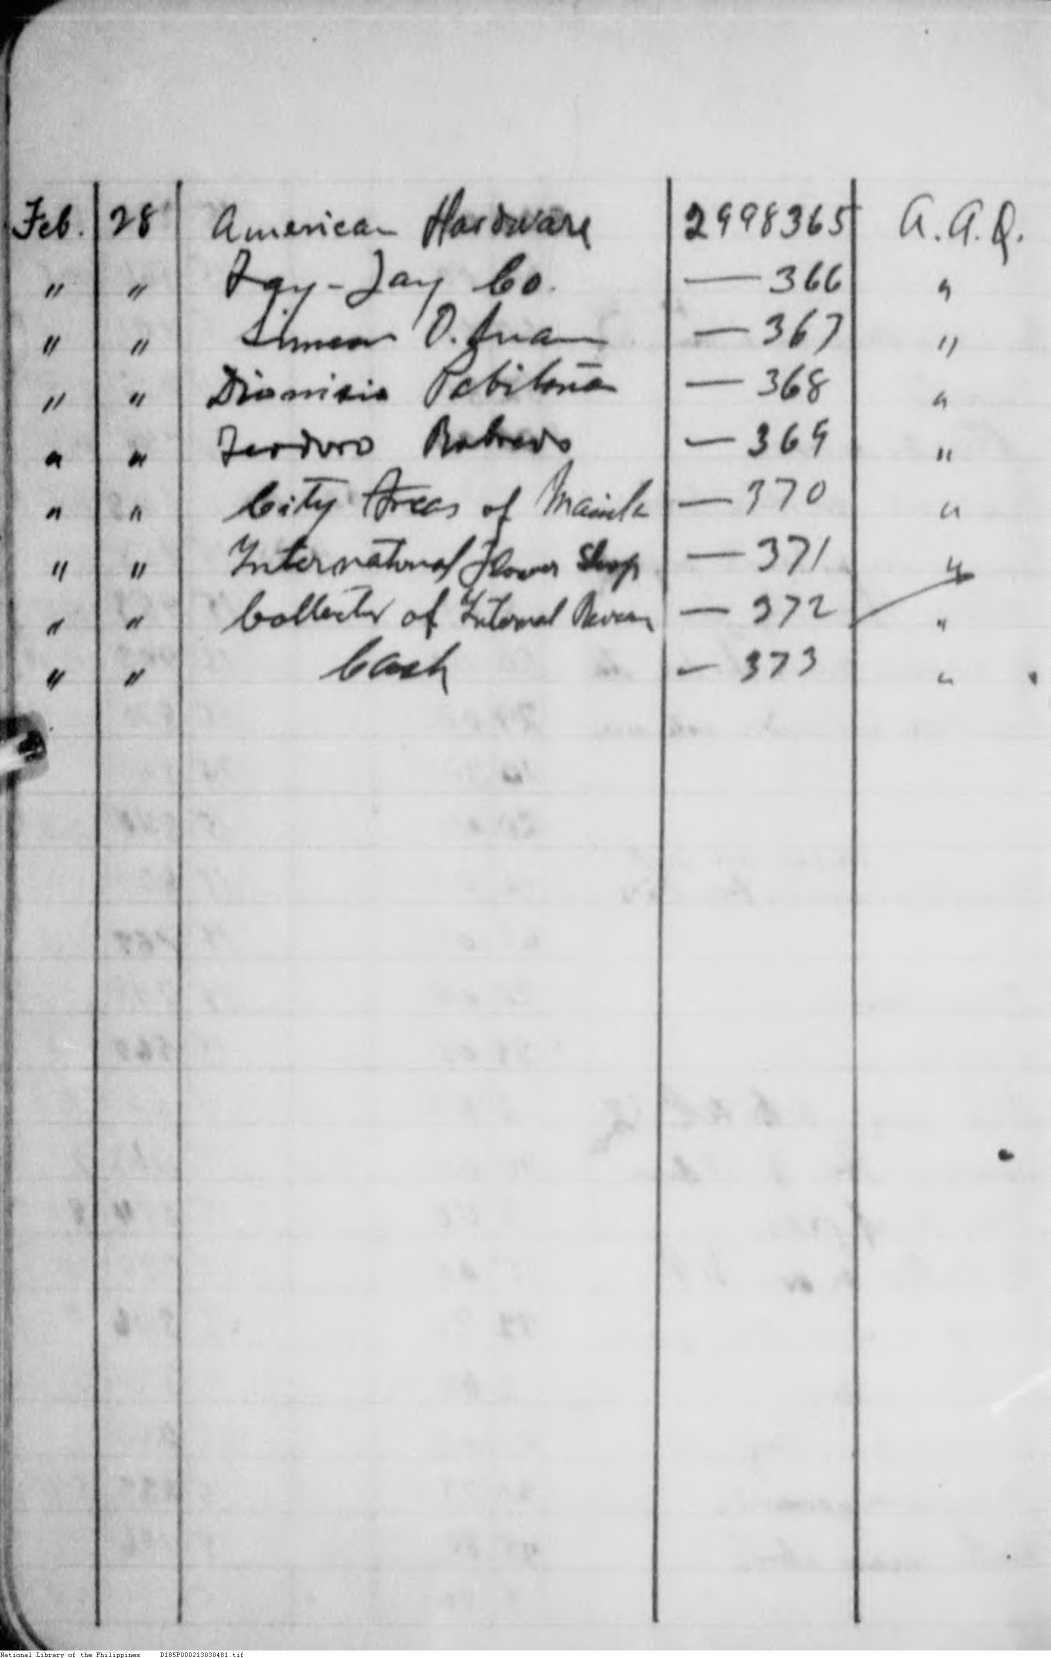 Feb. 28 American Hardware 2998365 A.A.Q.
" " Jay-Jay Co. — 366 "
" " Simeon O. Juan — 367 "
" " Dionisio Pabiloña — 368 "
" " Teodoro Robredo — 369 "
" " City Treas of Manila — 370 "
" " International Flower Shop — 371 "
" " Collector of Internal Reven — 372 "
" " Cash — 373 "
National Library of the Philippines D185P000213030481.tif